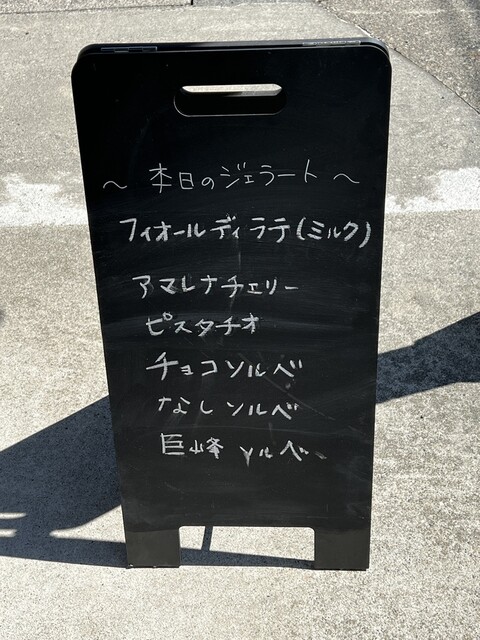 ～ 本日のジェラート ～
フィオールディラテ(ミルク)
アマレナチェリー
ピスタチオ
チョコソルベ
なしソルベ
巨峰ソルベ